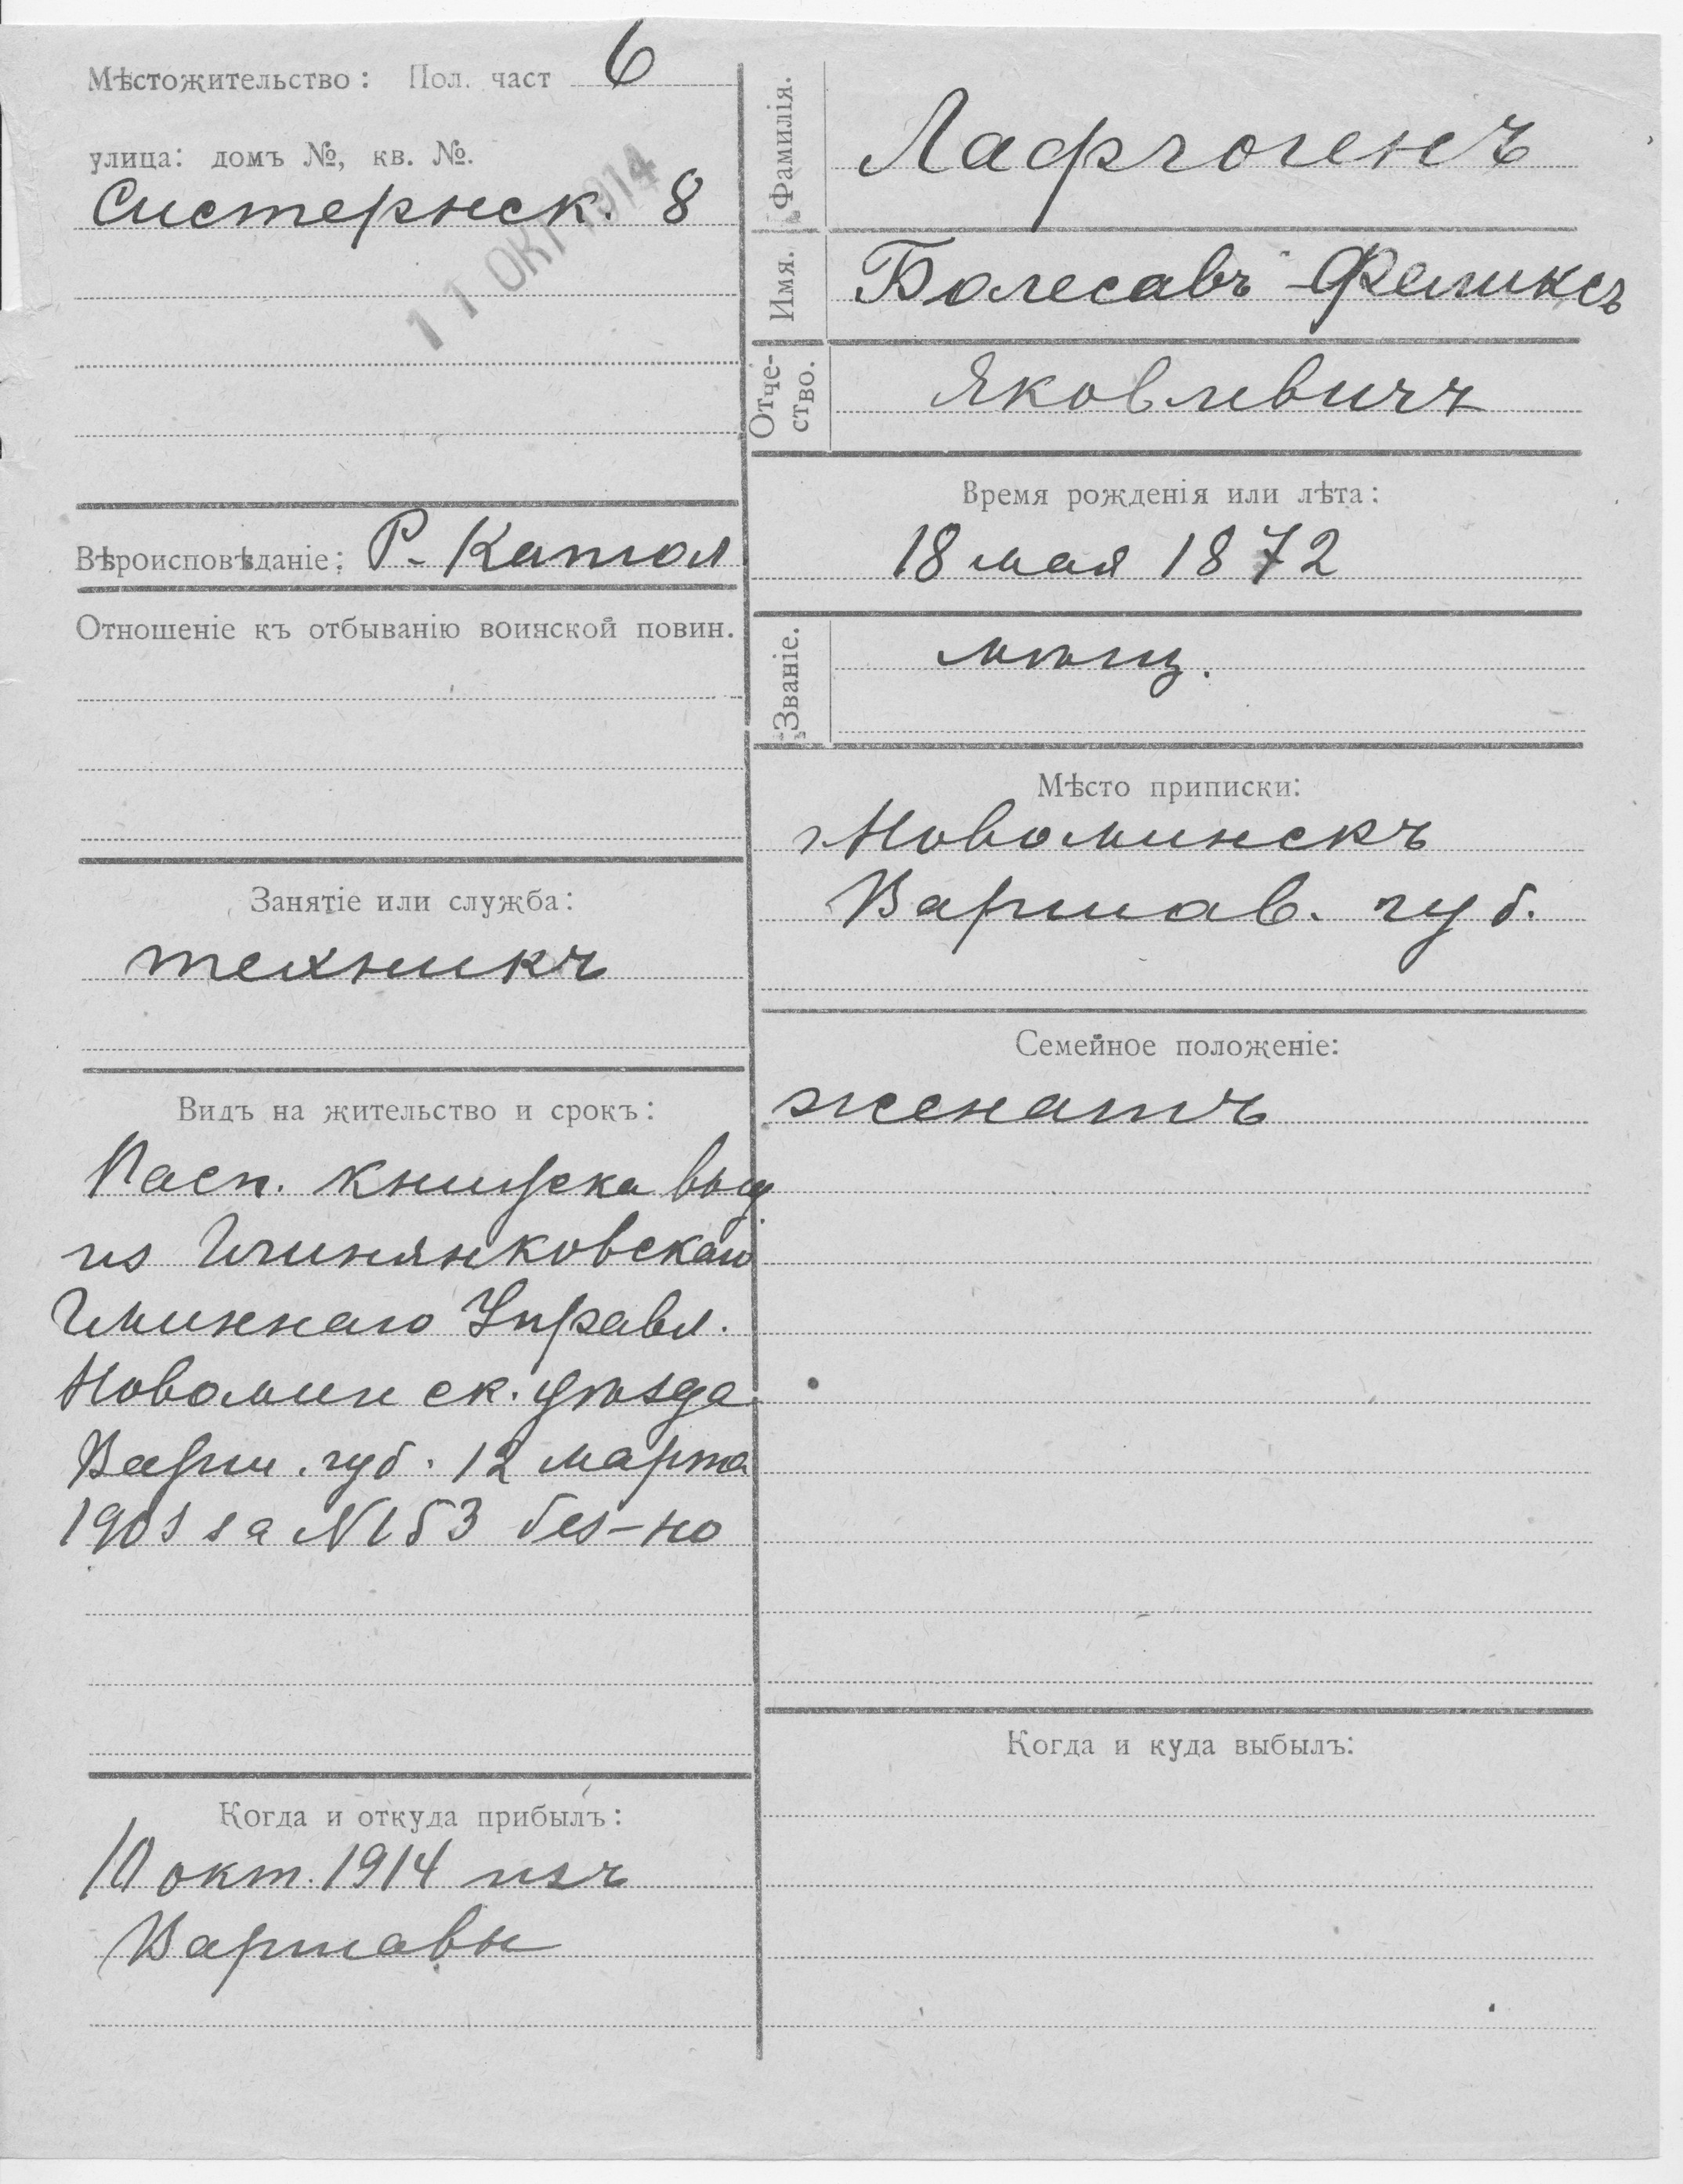 Мѣстожительство: Пол. част 6
улица: домъ №, кв. №.
Систернск. 8
11 ОКТ 1914
Вѣроисповѣданіе: Р. Катол
Отношеніе къ отбыванію воинской повин.
Занятіе или служба:
техникъ
Видъ на жительство и срокъ:
Пасп. книжка выд
из
Гминнаго Управл.
Новоминск. уѣзда
Варш. губ. 12 марта
за № 153 без-но
Когда и откуда прибылъ:
10 окт. 1914 изъ
Варшавы
Фамилія.
Имя. Болесавъ-Феликсъ
Отче-ство. Яковлевичъ
Время рожденія или лѣта:
18 мая 1872
Званіе. мѣщ.
Мѣсто приписки:
г Новоминскъ
Варшав. губ.
Семейное положеніе:
женатъ
Когда и куда выбылъ: